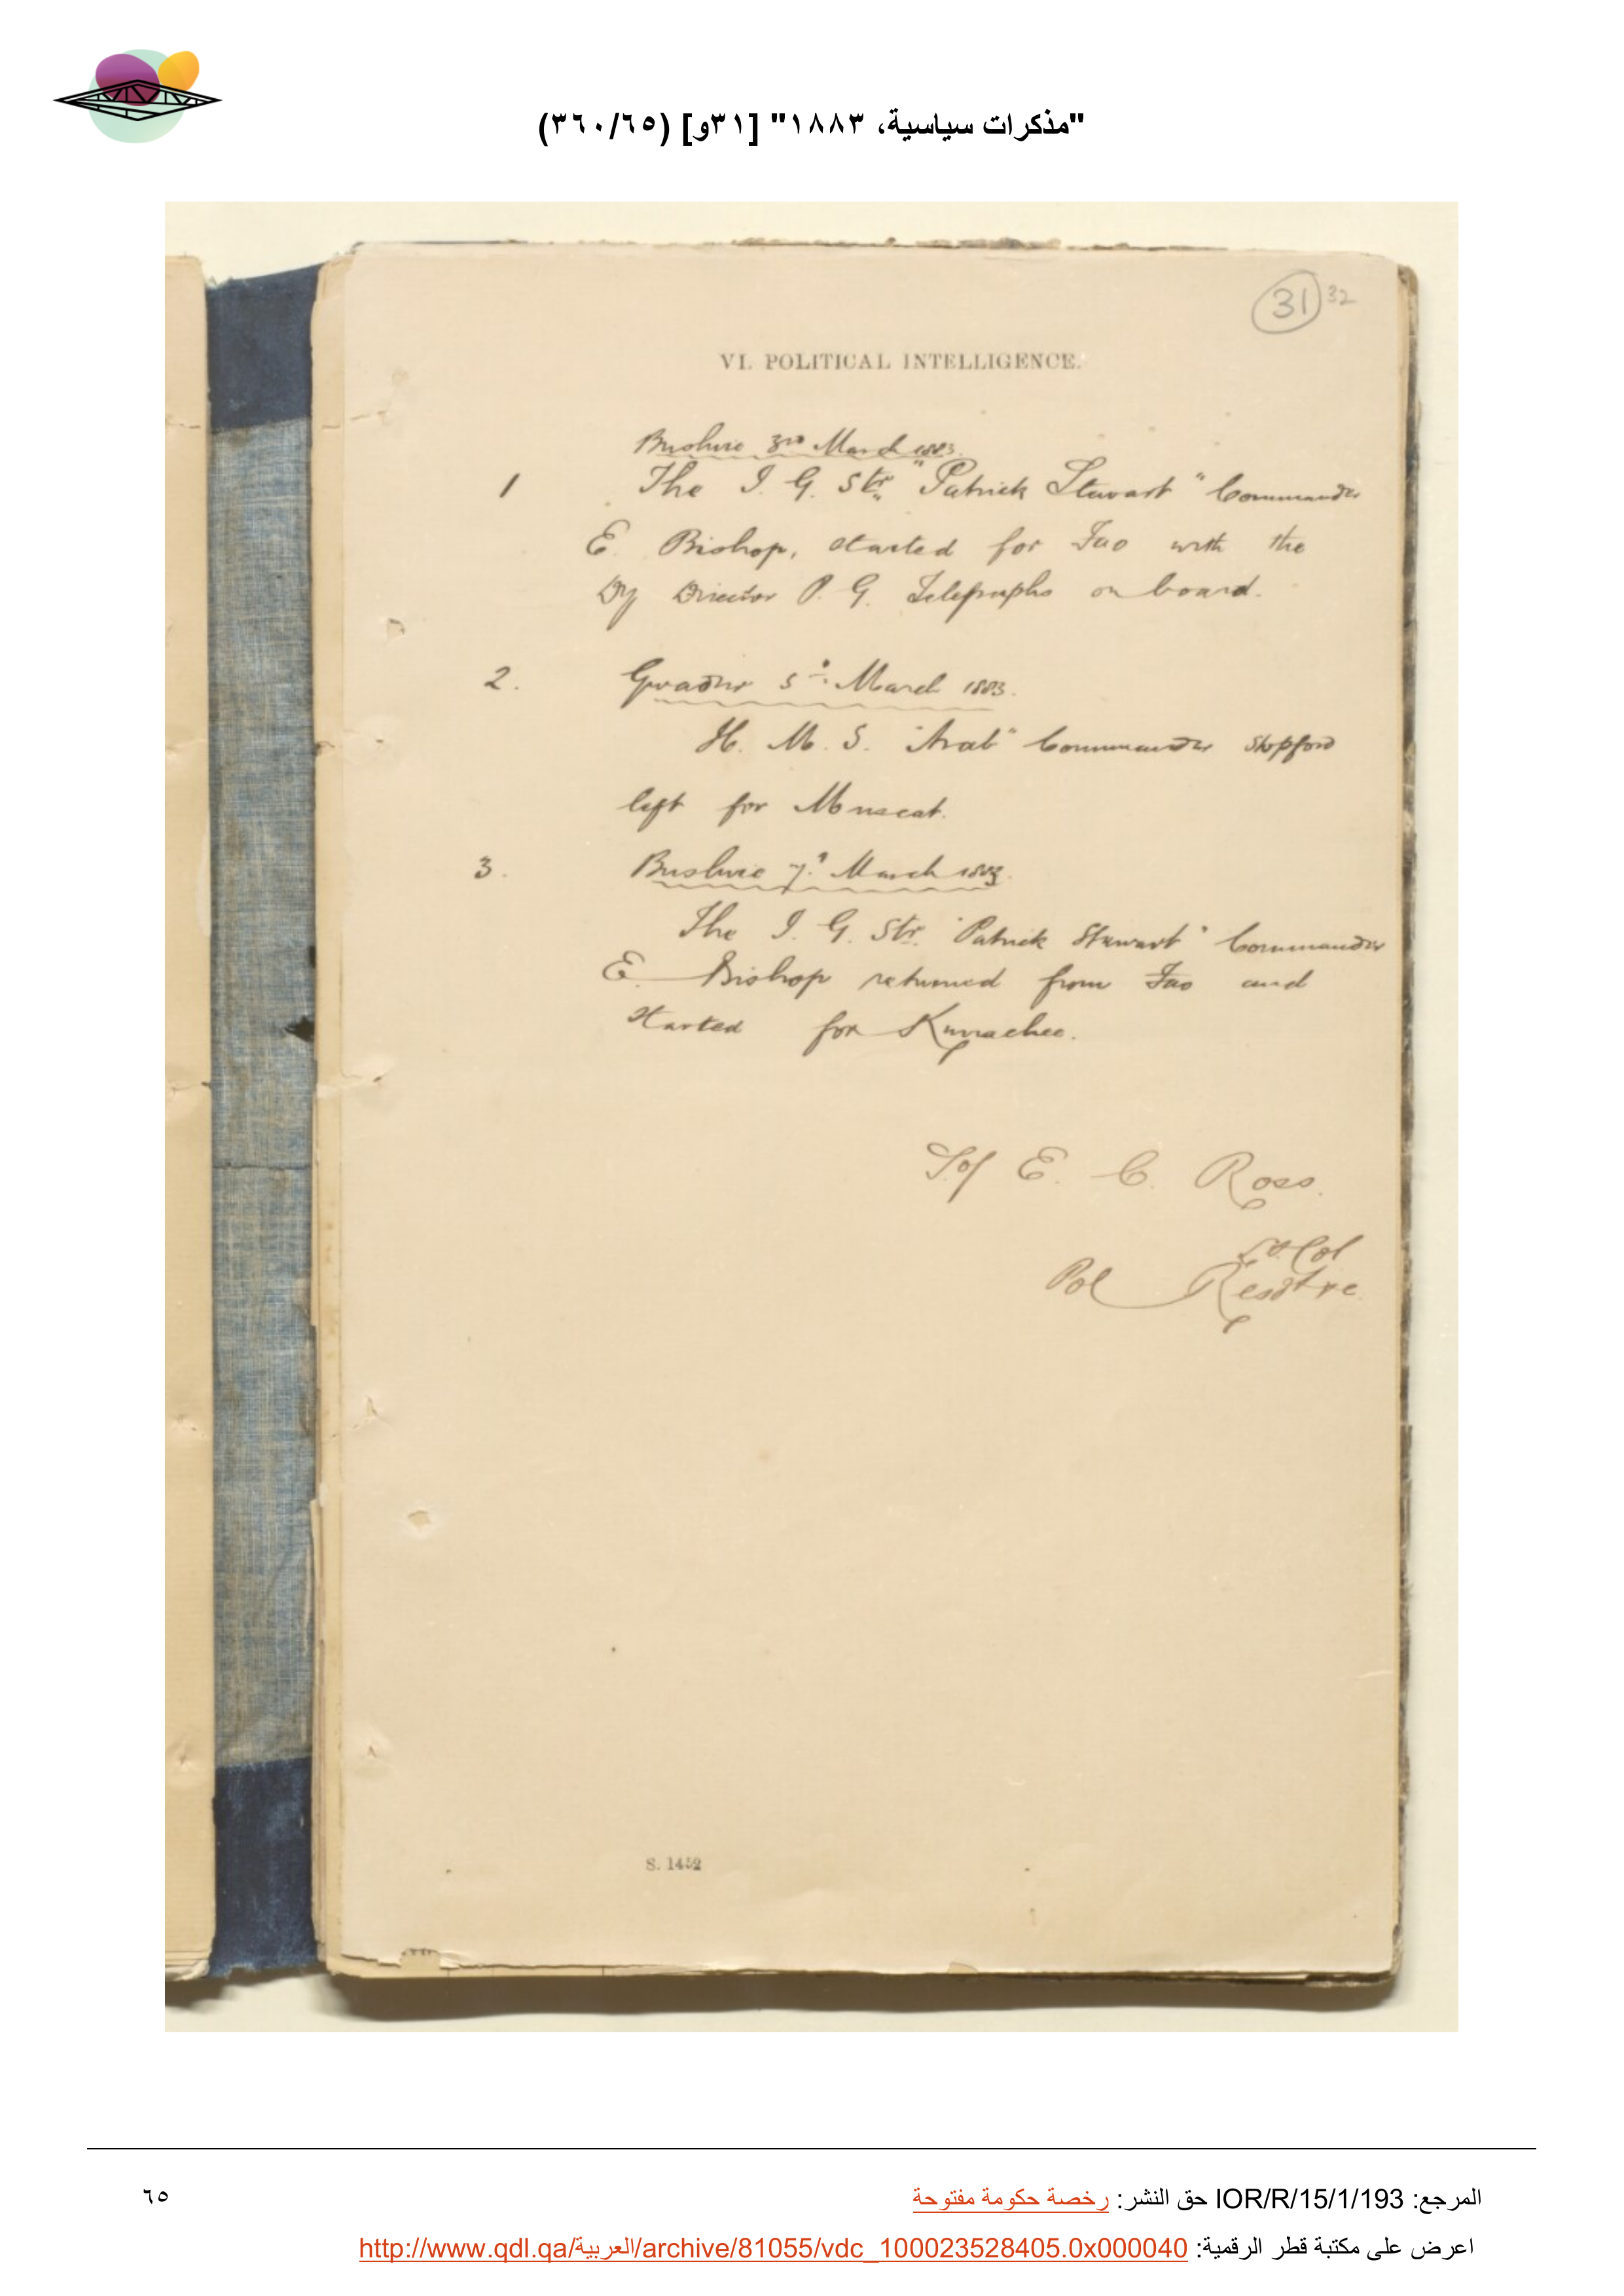 "مذكرات سياسية، ١٨٨٣" [٣١و] (٣٦٠/٦٥)
31 32
VI. POLITICAL INTELLIGENCE.
Bushire 3rd March 1883.
1 The I. G. Str. "Patrick Stewart" Commander
E. Bishop, started for Fao with the
Dy Director P. G. Telegraphs on board.
2. Gwadur 5th March 1883.
H. M. S. "Arab" Commander Stopford
left for Muscat.
3. Bushire 7th March 1883.
The I. G. Str. "Patrick Stewart" Commander
E. Bishop returned from Fao and
started for Kurrachee.
E. C. Ross.
Lt. Col
Pol
S. 1452
المرجع: IOR/R/15/1/193 حق النشر: رخصة حكومة مفتوحة
٦٥
اعرض على مكتبة قطر الرقمية: http://www.qdl.qa/العربية/archive/81055/vdc_100023528405.0x000040